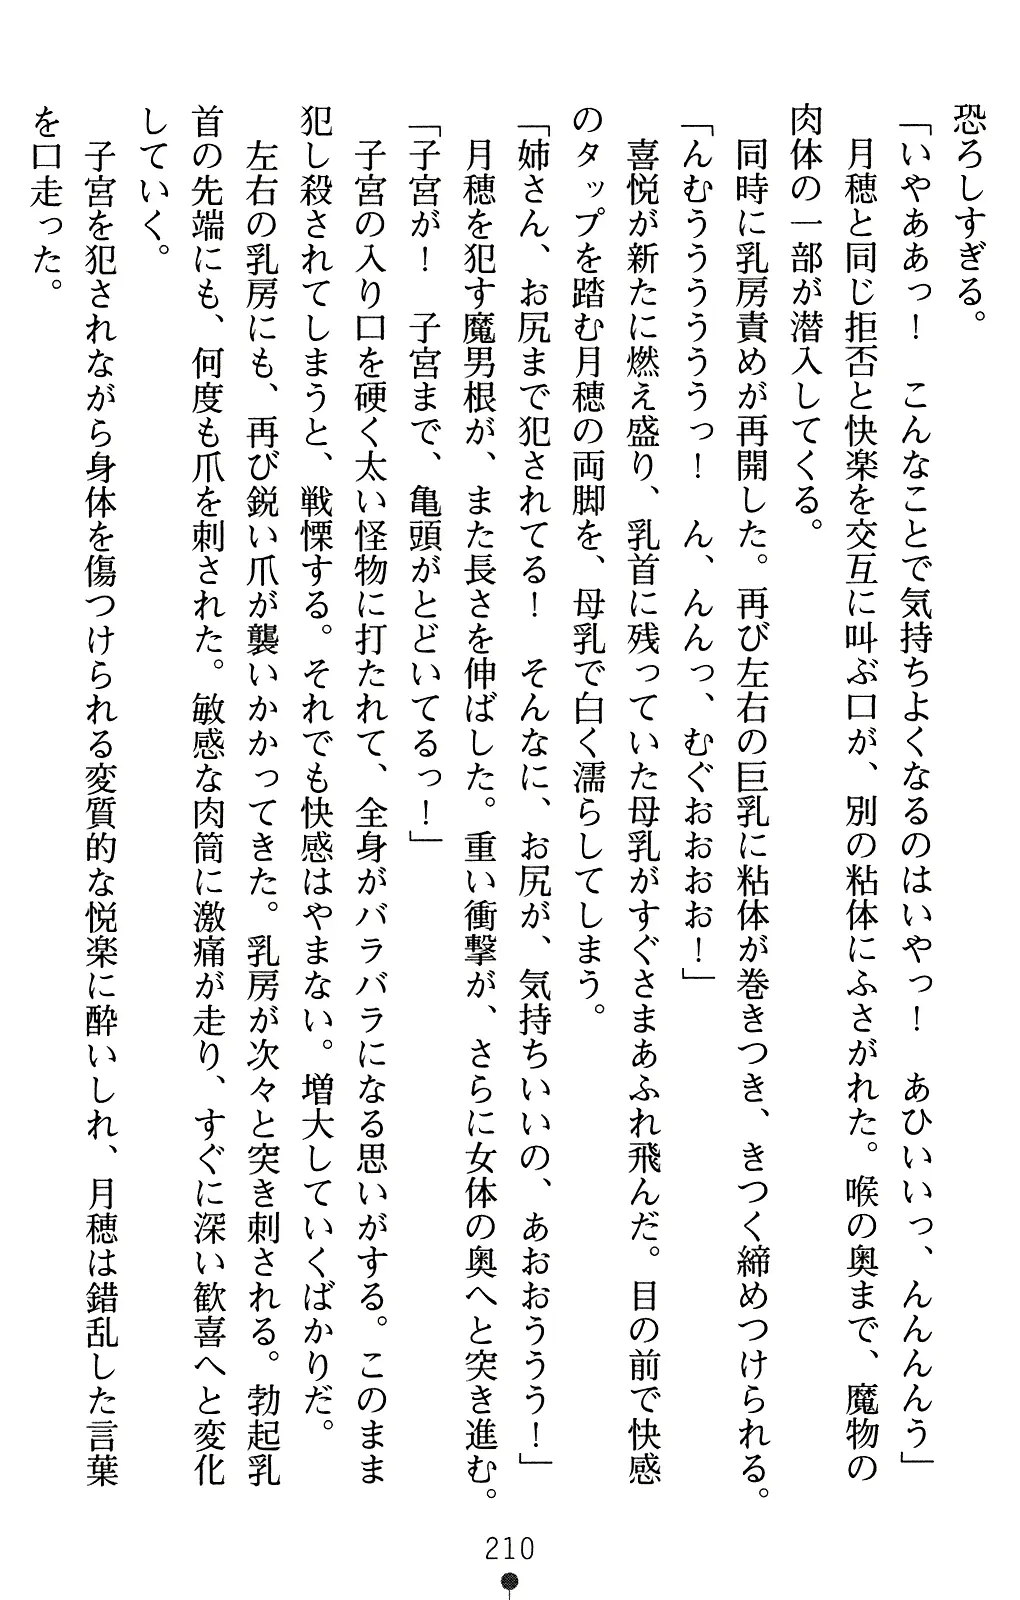 恐ろしすぎる。
「いやああっ！　こんなことで気持ちよくなるのはいやっ！　あひいいっ、んんんんう」
月穂と同じ拒否と快楽を交互に叫ぶ口が、別の粘体にふさがれた。喉の奥まで、魔物の
肉体の一部が潜入してくる。
同時に乳房責めが再開した。再び左右の巨乳に粘体が巻きつき、きつく締めつけられる。
「んむうううううっ！　ん、んんっ、むぐおおおお！」
喜悦が新たに燃え盛り、乳首に残っていた母乳がすぐさまあふれ飛んだ。目の前で快感
のタップを踏む月穂の両脚を、母乳で白く濡らしてしまう。
「姉さん、お尻まで犯されてる！　そんなに、お尻が、気持ちいいの、あおおううう！」
月穂を犯す魔男根が、また長さを伸ばした。重い衝撃が、さらに女体の奥へと突き進む。
「子宮が！　子宮まで、亀頭がとどいてるっ！」
子宮の入り口を硬く太い怪物に打たれて、全身がバラバラになる思いがする。このまま
犯し殺されてしまうと、戦慄する。それでも快感はやまない。増大していくばかりだ。
左右の乳房にも、再び鋭い爪が襲いかかってきた。乳房が次々と突き刺される。勃起乳
首の先端にも、何度も爪を刺された。敏感な肉筒に激痛が走り、すぐに深い歓喜へと変化
していく。
子宮を犯されながら身体を傷つけられる変質的な悦楽に酔いしれ、月穂は錯乱した言葉
を口走った。
210